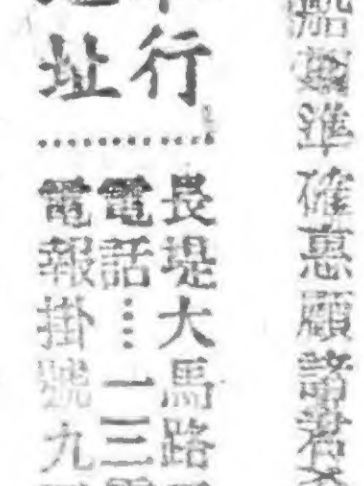 船期準確惠顧諸君
行
址
長堤大馬路
電話⋯一三
電報掛號九